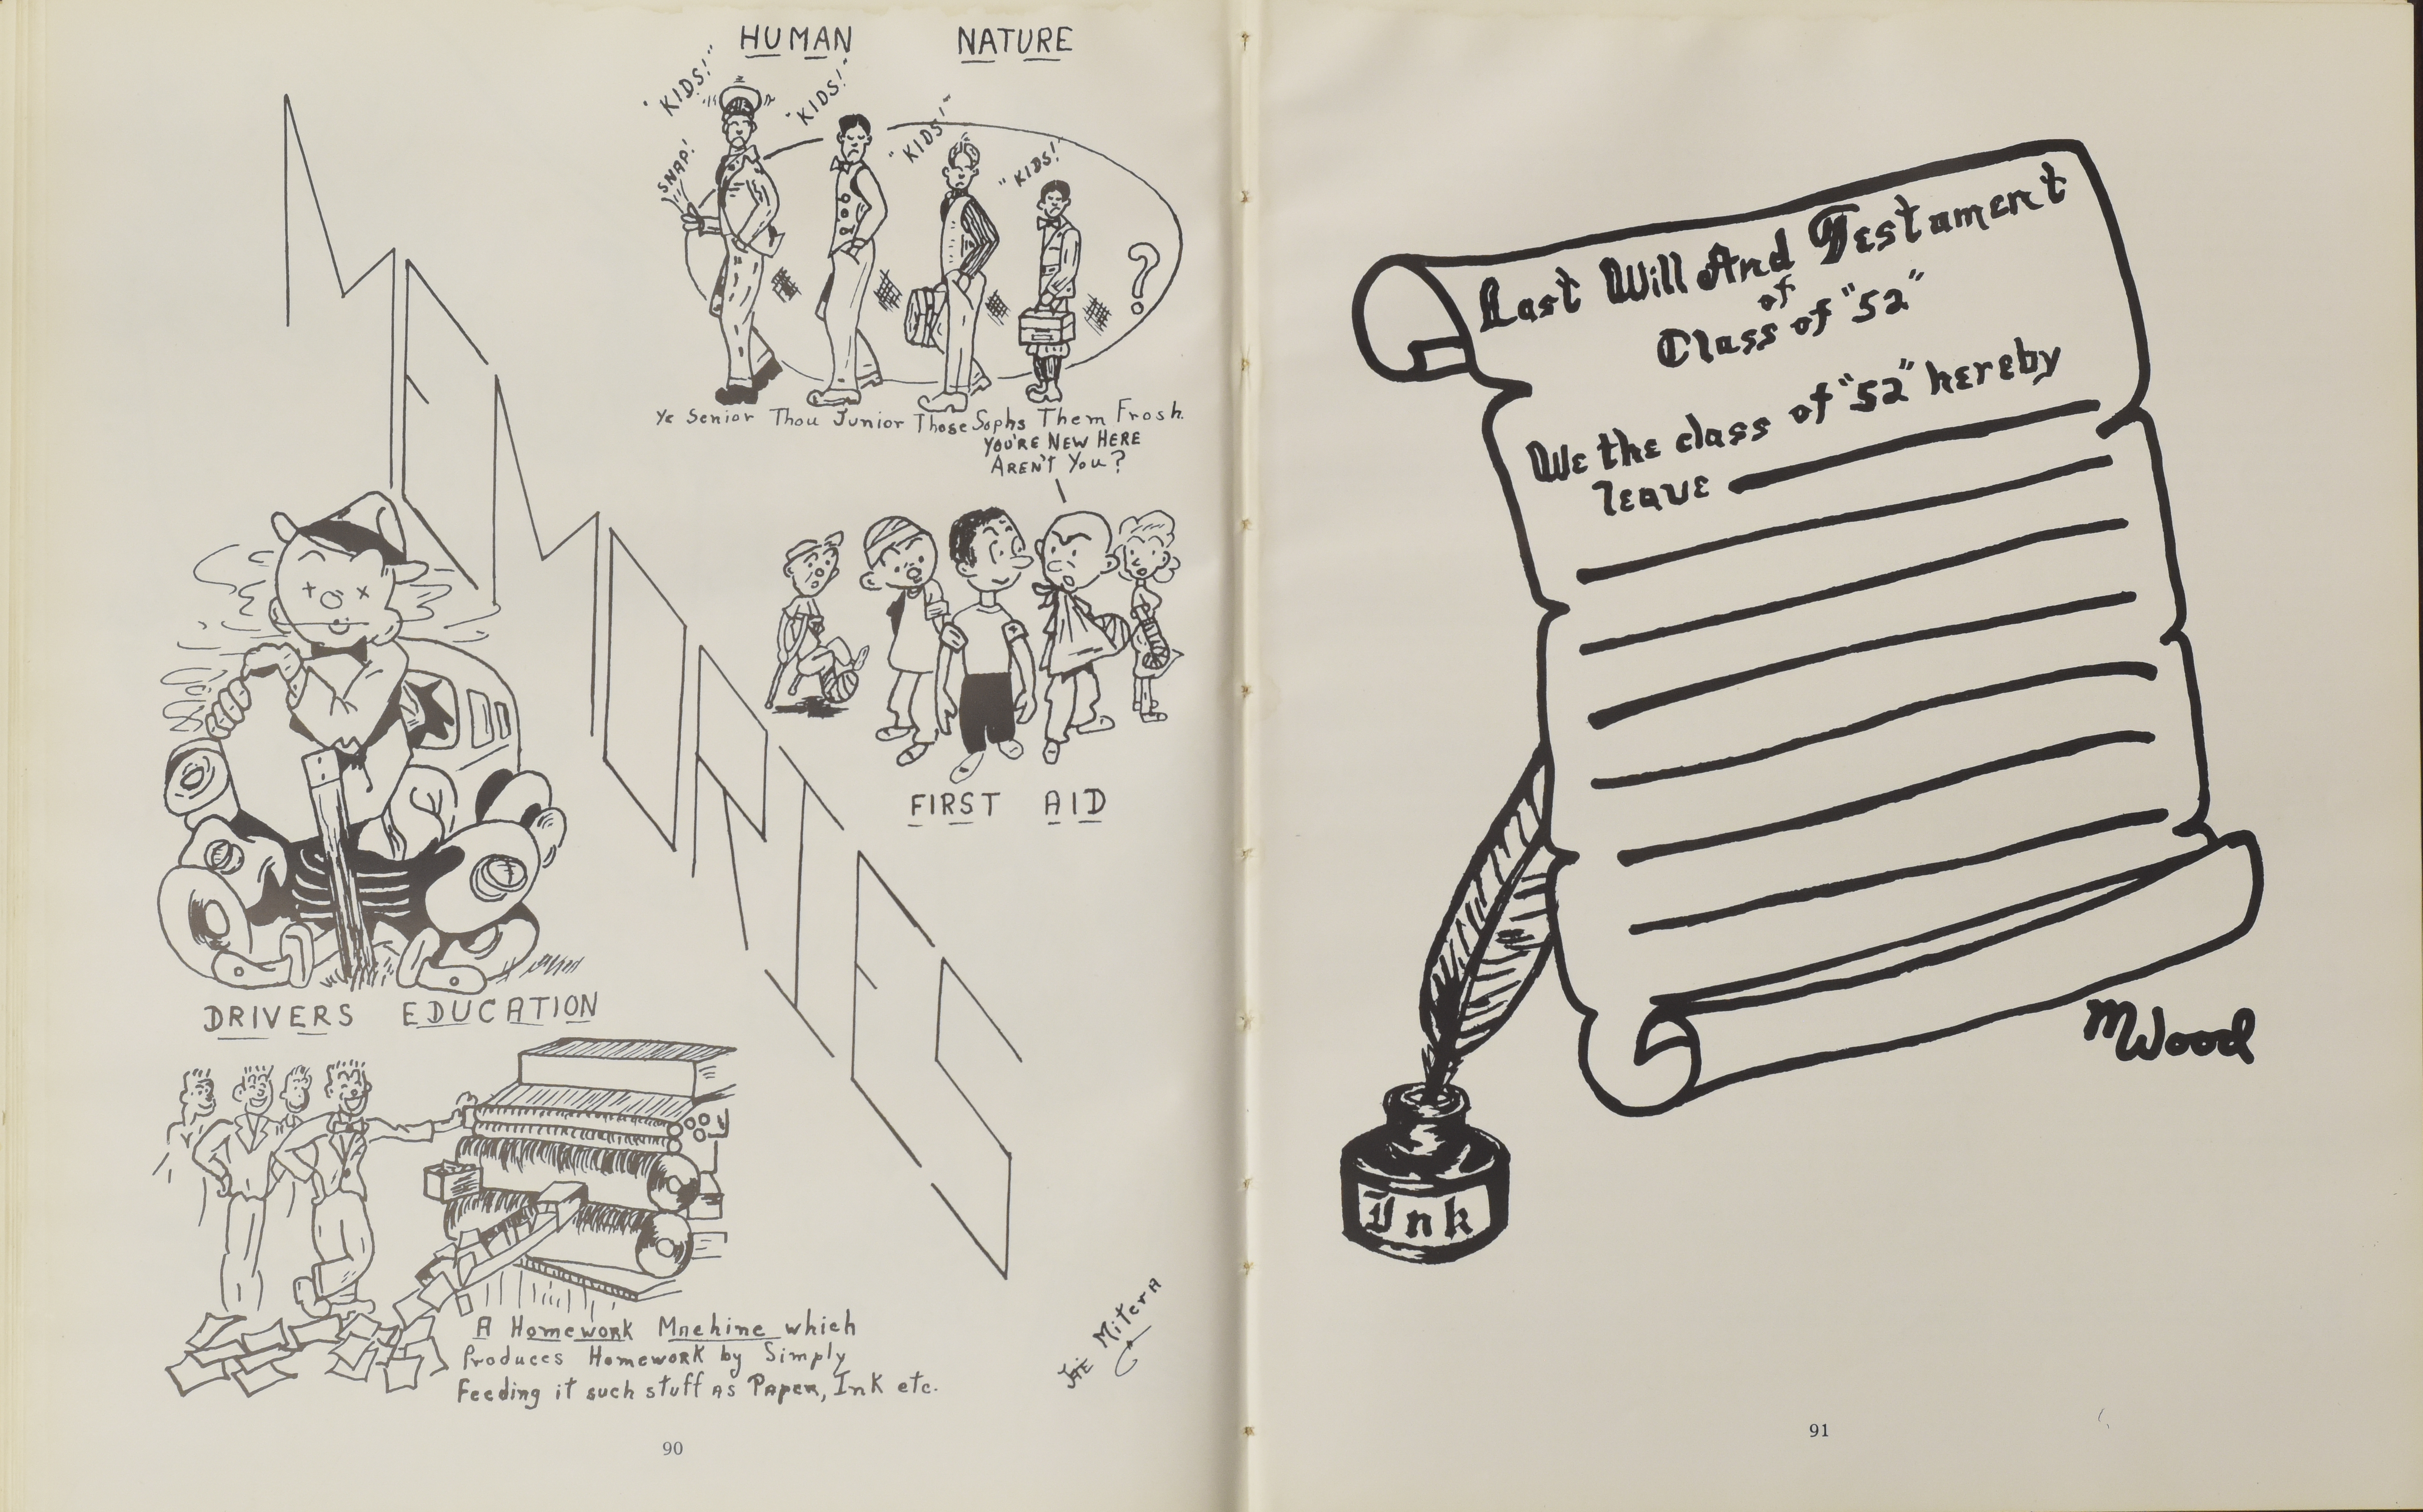 HUMAN NATURE
"KIDS!"
"KIDS!"
"KIDS!"
"KIDS!"
SNAP!
?
Ye Senior Thou Junior Those Sophs Them Frosh.
YOU'RE NEW HERE
AREN'T YOU?
FIRST AID
MEMORIES
DRIVERS EDUCATION
A Homework Machine which
Produces Homework by Simply
Feeding it such stuff as Paper, Ink etc.
Mitera
90
Last Will And Testament
of
Class of "52"
We the class of "52" hereby
leave
M Wood
Ink
91